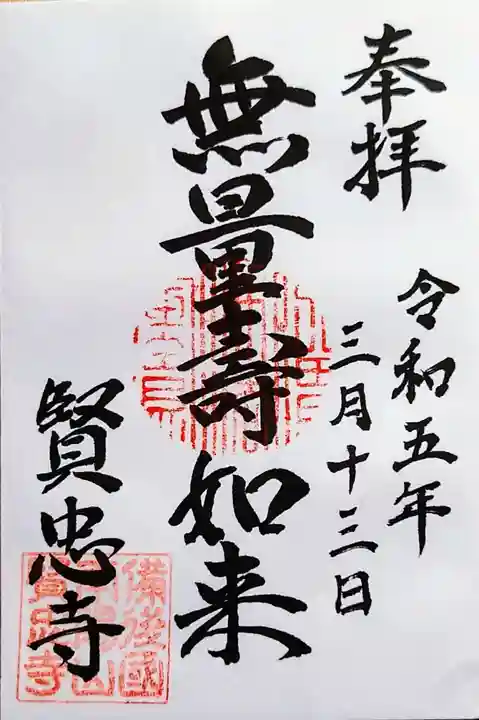 奉拝
令和五年
三月十三日
無量壽如来
賢忠寺
備後國
賢忠寺